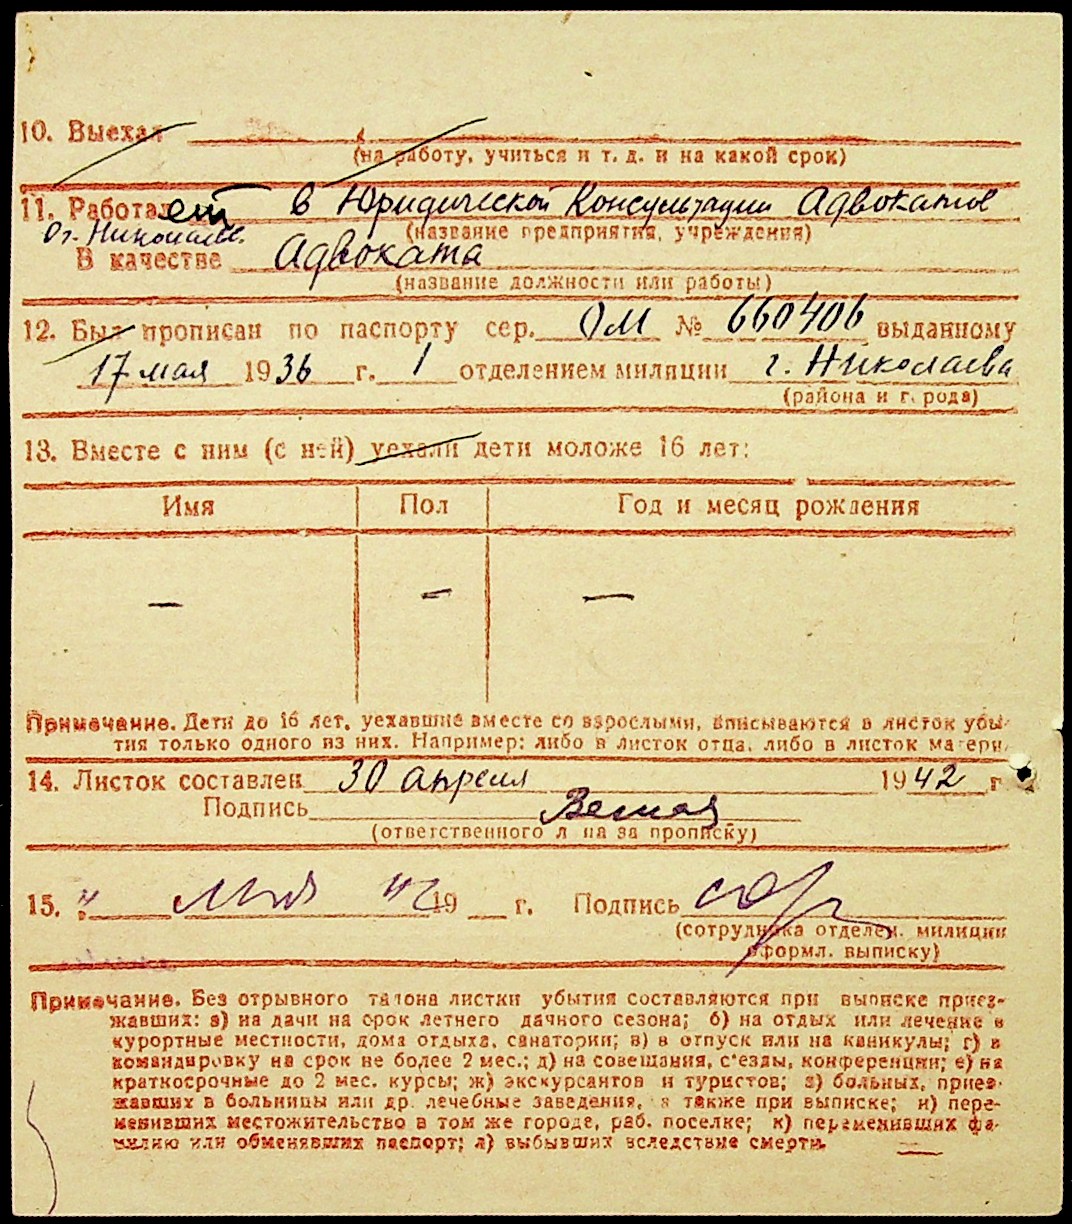 10. Выехал
(на работу, учиться и т. д. и на какой срок)
11. Работает в Юридической Консультации Адвокатов
(название предприятия, учреждения)
В качестве Адвоката
(название должности или работы)
12. Был прописан по паспорту сер. ОМ № 660406 выданному
17 мая 1936 г. 1 отделением милиции г. Николаева
(района и города)
13. Вместе с ним (с ней) уехали дети моложе 16 лет:
Имя Пол Год и месяц рождения
— — —
Примечание. Дети до 16 лет, уехавшие вместе со взрослыми, вписываются в листок убы-
тия только одного из них. Например: либо в листок отца, либо в листок матери.
14. Листок составлен 30 апреля 1942 г
Подпись
(ответственного лица за прописку)
15. мая 42 19 г. Подпись
(сотрудника отделен. милиции
оформл. выписку)
Примечание. Без отрывного талона листки убытия составляются при выписке приез-
жавших: а) на дачи на срок летнего дачного сезона; б) на отдых или лечение в
курортные местности, дома отдыха, санатории; в) в отпуск или на каникулы; г) в
командировку на срок не более 2 мес.; д) на совещания, с'езды, конференции; е) на
краткосрочные до 2 мес. курсы; ж) экскурсантов и туристов; з) больных, приез-
жавших в больницы или др. лечебные заведения, а также при выписке; и) пере-
менивших местожительство в том же городе, раб. поселке; к) переменивших фа-
милию или обменявших паспорт; л) выбывших вследствие смерти.